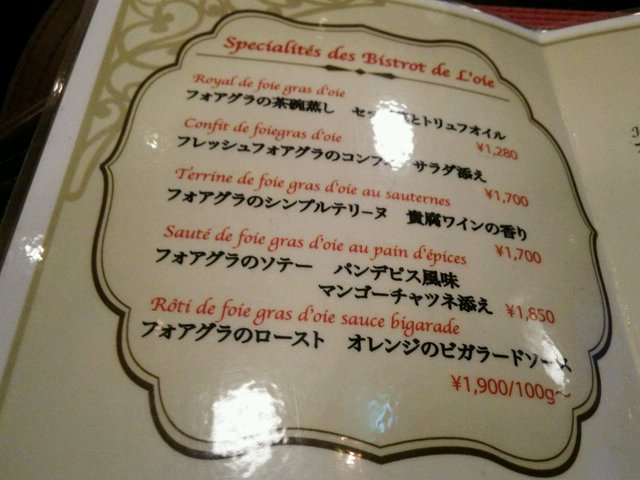 Specialités des Bistrot de L'oie
Royal de foie gras d'oie
フォアグラの茶碗蒸し とトリュフオイル
¥1,280
Confit de foiegras d'oie
フレッシュフォアグラのコンフィ サラダ添え
¥1,700
Terrine de foie gras d'oie au sauternes
フォアグラのシンプルテリーヌ 貴腐ワインの香り
¥1,700
Sauté de foie gras d'oie au pain d'épices
フォアグラのソテー パンデピス風味
マンゴーチャツネ添え ¥1,850
Rôti de foie gras d'oie sauce bigarade
フォアグラのロースト オレンジのビガラードソース
¥1,900/100g～